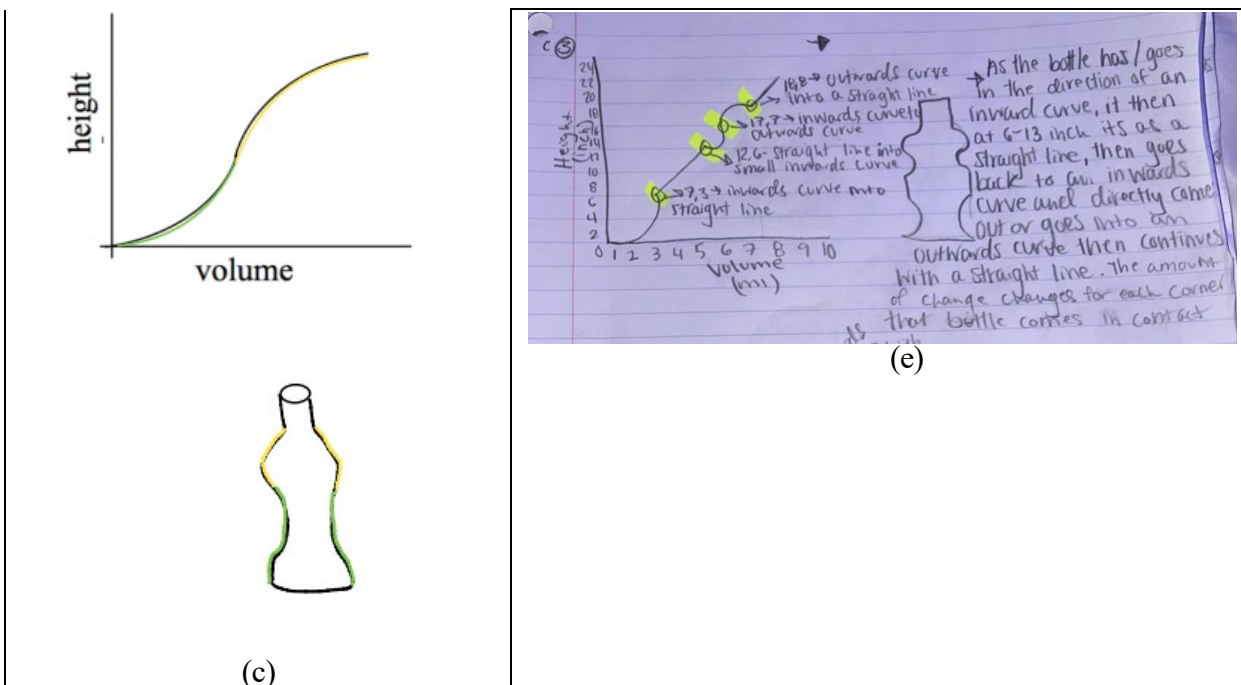 height
volume
(c)
C ③
24
22
20
18
16
14
12
10
8
6
4
2
0 1 2 3 4 5 6 7 8 9 10
Height
(inch)
Volume
(ml)
18,8→ outwards curve
into a straght line
→17,7→ inwards curveto
outwards curve
12,6- straight line into
small inwards curve
→7,3→ inwards curve into
straight line
As the bottle has/goes
in the direction of an
inward curve, it then
at 6-13 inch its as a
straight line, then goes
back to an inwards
curve and directly came
out or goes into an
outwards curve then continues
with a straight line. The amount
of change changes for each corner
that bottle comes in contact
with
(e)